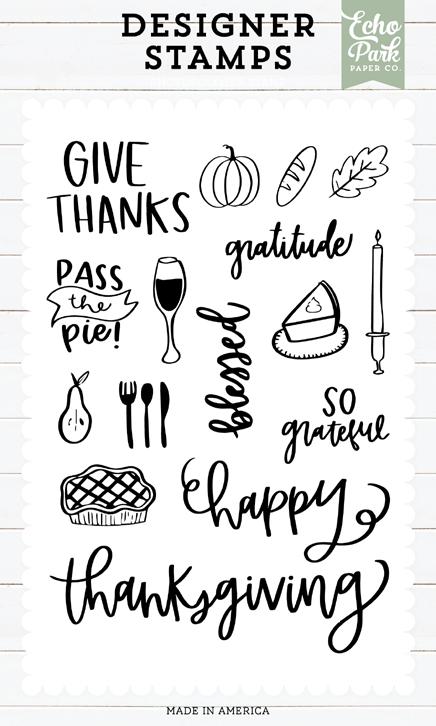 DESIGNER
STAMPS
Echo
Park
PAPER CO.
GIVE
THANKS
gratitude
PASS
the
pie!
blessed
SO
grateful
happy
thanksgiving
MADE IN AMERICA